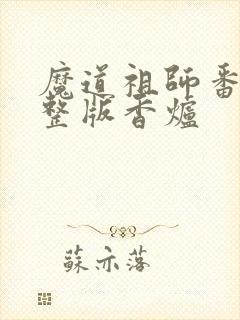 魔道祖師番
整版香爐
蘇亦落